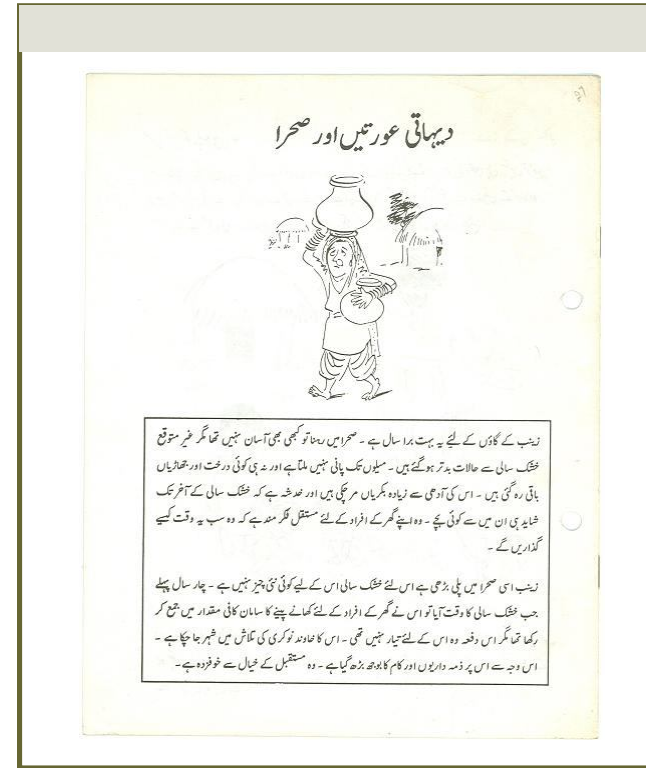 97
دیہاتی عورتیں اور صحرا
زینب کے گاؤں کے لیئے یہ بہت برا سال ہے ۔ صحرا میں رہنا تو کبھی بھی آسان نہیں تھا مگر غیر متوقع
خشک سالی سے حالات بدتر ہو گئے ہیں ۔ میلوں تک پانی نہیں ملتا ہے اور نہ ہی کوئی درخت اور جھاڑیاں
باقی رہ گئی ہیں ۔ اس کی آدھی سے زیادہ بکریاں مر چکی ہیں اور خدشہ ہے کہ خشک سالی کے آخر تک
شاید ہی ان میں سے کوئی بچے ۔ وہ اپنے گھر کے افراد کے لئے مستقل فکر مند ہے کہ وہ سب یہ وقت کیسے
گذاریں گے ۔
زینب اسی صحرا میں پلی بڑھی ہے اس لئے خشک سالی اس کے لیے کوئی نئی چیز نہیں ہے ۔ چار سال پہلے
جب خشک سالی کا وقت آیا تو اس نے گھر کے افراد کے لئے کھانے پینے کا سامان کافی مقدار میں جمع کر
رکھا تھا مگر اس دفعہ وہ اس کے لئے تیار نہیں تھی ۔ اس کا خاوند نوکری کی تلاش میں شہر جا چکا ہے ۔
اس وجہ سے اس پر ذمہ داریوں اور کام کا بوجھ بڑھ گیا ہے ۔ وہ مستقبل کے خیال سے خوفزدہ ہے ۔